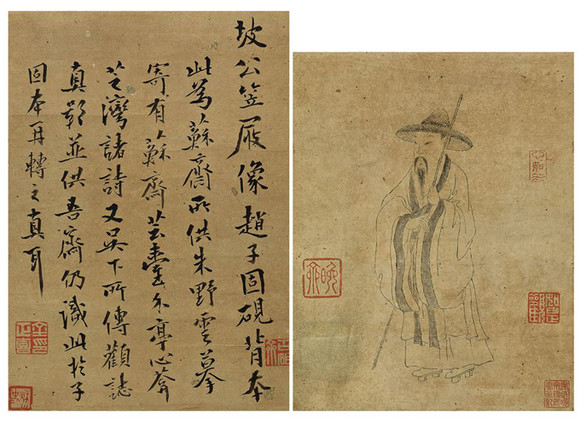 坡公笠屐像趙子固硯背本
此為蘇齋所供朱野雲摹
寄有蘇齋芸臺亭心葊
芷灣諸詩又吳下所傳顴誌
真影並供吾齋仍識此於子
固本再轉之真耳